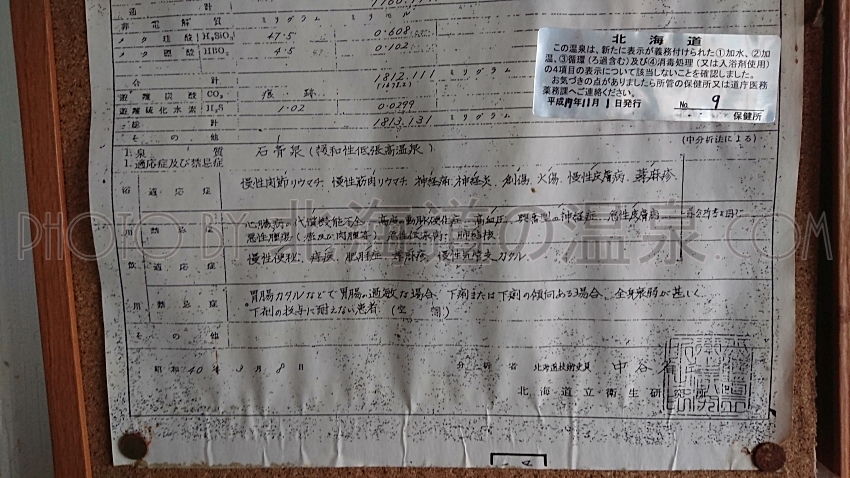 通計 1160.11
非電解質 ミリグラム ミリモル
メタ珪酸 H₂SiO₃ 47.5 0.608
メタ硼酸 HBO₂ 4.5 0.102
合計 1812.111 ミリグラム
遊離炭酸 CO₂ 痕跡
遊離硫化水素 H₂S 1.02 0.0299
総計 1813.131 ミリグラム
その他
1. 泉質 石膏泉(緩和性低張高温泉) (中分析法による)
1. 適応症及び禁忌症
浴用 適応症 慢性関節リウマチ、慢性筋肉リウマチ、神経痛、神経炎、創傷、火傷、慢性皮膚病、蕁麻疹
禁忌症 心臓病の代償機能不全、高度の動脈硬化症、高血圧、
悪性腫瘍(癌及び肉腫等) 肺結核
飲用 適応症 慢性便秘、痔疾、肥胖症、蕁麻疹、慢性気管支カタル
禁忌症 胃腸カタルなどで胃腸の過敏な場合、下痢または下痢の傾向ある場合、全身衰弱が甚しく
下剤の投与に耐えない患者
その他
昭和40年3月8日 分析者 北海道技術吏員 中谷
北海道立衛生研究所
北海道
この温泉は、新たに表示が義務付けられた①加水、②加
温、③循環(ろ過含む)及び④消毒処理(又は入浴剤使用)
の4項目の表示について該当しないことを確認しました。
お気づきの点がありましたら所管の保健所又は道庁医務
薬務課へご連絡ください。
平成17年11月1日発行 No. 9
保健所
PHOTO BY 北海道の温泉.COM